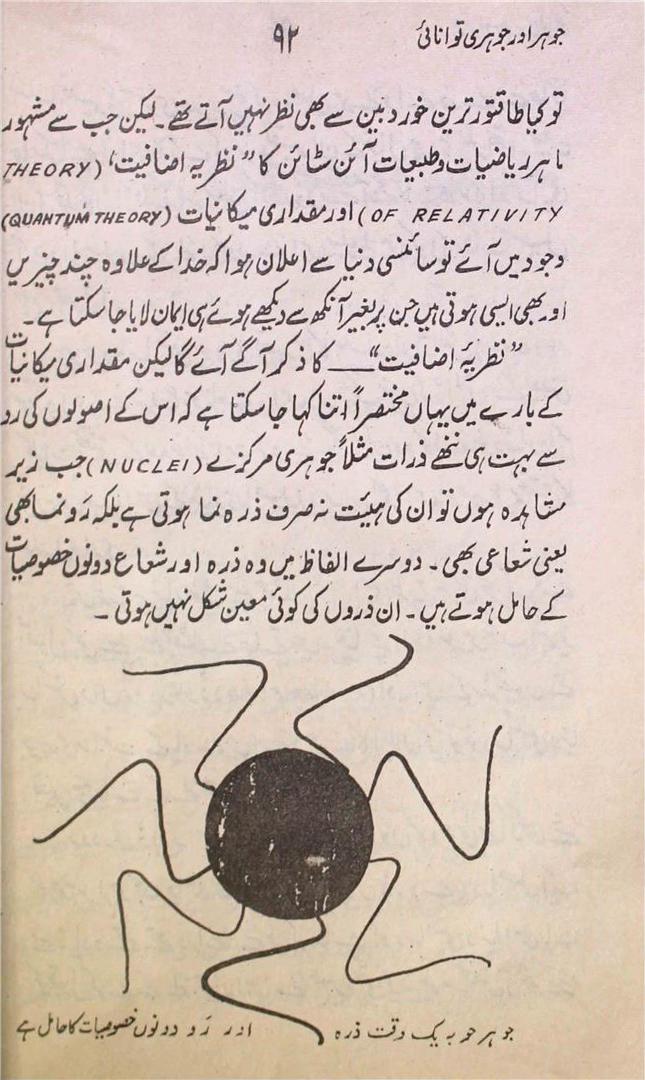 جوہر اور جوہری توانائی
۹۲
تو کیا طاقتور ترین خوردبین سے بھی نظر نہیں آتے تھے۔ لیکن جب سے مشہور
ماہر ریاضیات و طبیعات آئن سٹائن کا "نظریہ اضافیت" (THEORY
OF RELATIVITY) اور مقداری میکانیات (QUANTUM THEORY)
وجود میں آئے تو سائنسی دنیا سے اعلان ہوا کہ خدا کے علاوہ چند چیزیں
اور بھی ایسی ہوتی ہیں جن پر بغیر آنکھ سے دیکھے ہوئے ہی ایمان لایا جا سکتا ہے۔
"نظریۂ اضافیت" ــــ کا ذکر آگے آئے گا لیکن مقداری میکانیات
کے بارے میں یہاں مختصراً اتنا کہا جا سکتا ہے کہ اس کے اصولوں کی رو
سے بہت ہی ننھے ذرات مثلاً جوہری مرکزے (NUCLEI) جب زیر
مشاہدہ ہوں تو ان کی ہیئت نہ صرف ذرہ نما ہوتی ہے بلکہ رَو نما بھی
یعنی شعاعی بھی۔ دوسرے الفاظ میں وہ ذرہ اور شعاع دونوں خصوصیات
کے حامل ہوتے ہیں۔ ان ذروں کی کوئی معین شکل نہیں ہوتی۔
جوہر جو بہ یک وقت ذرہ اور رَو دونوں خصوصیات کا حامل ہے